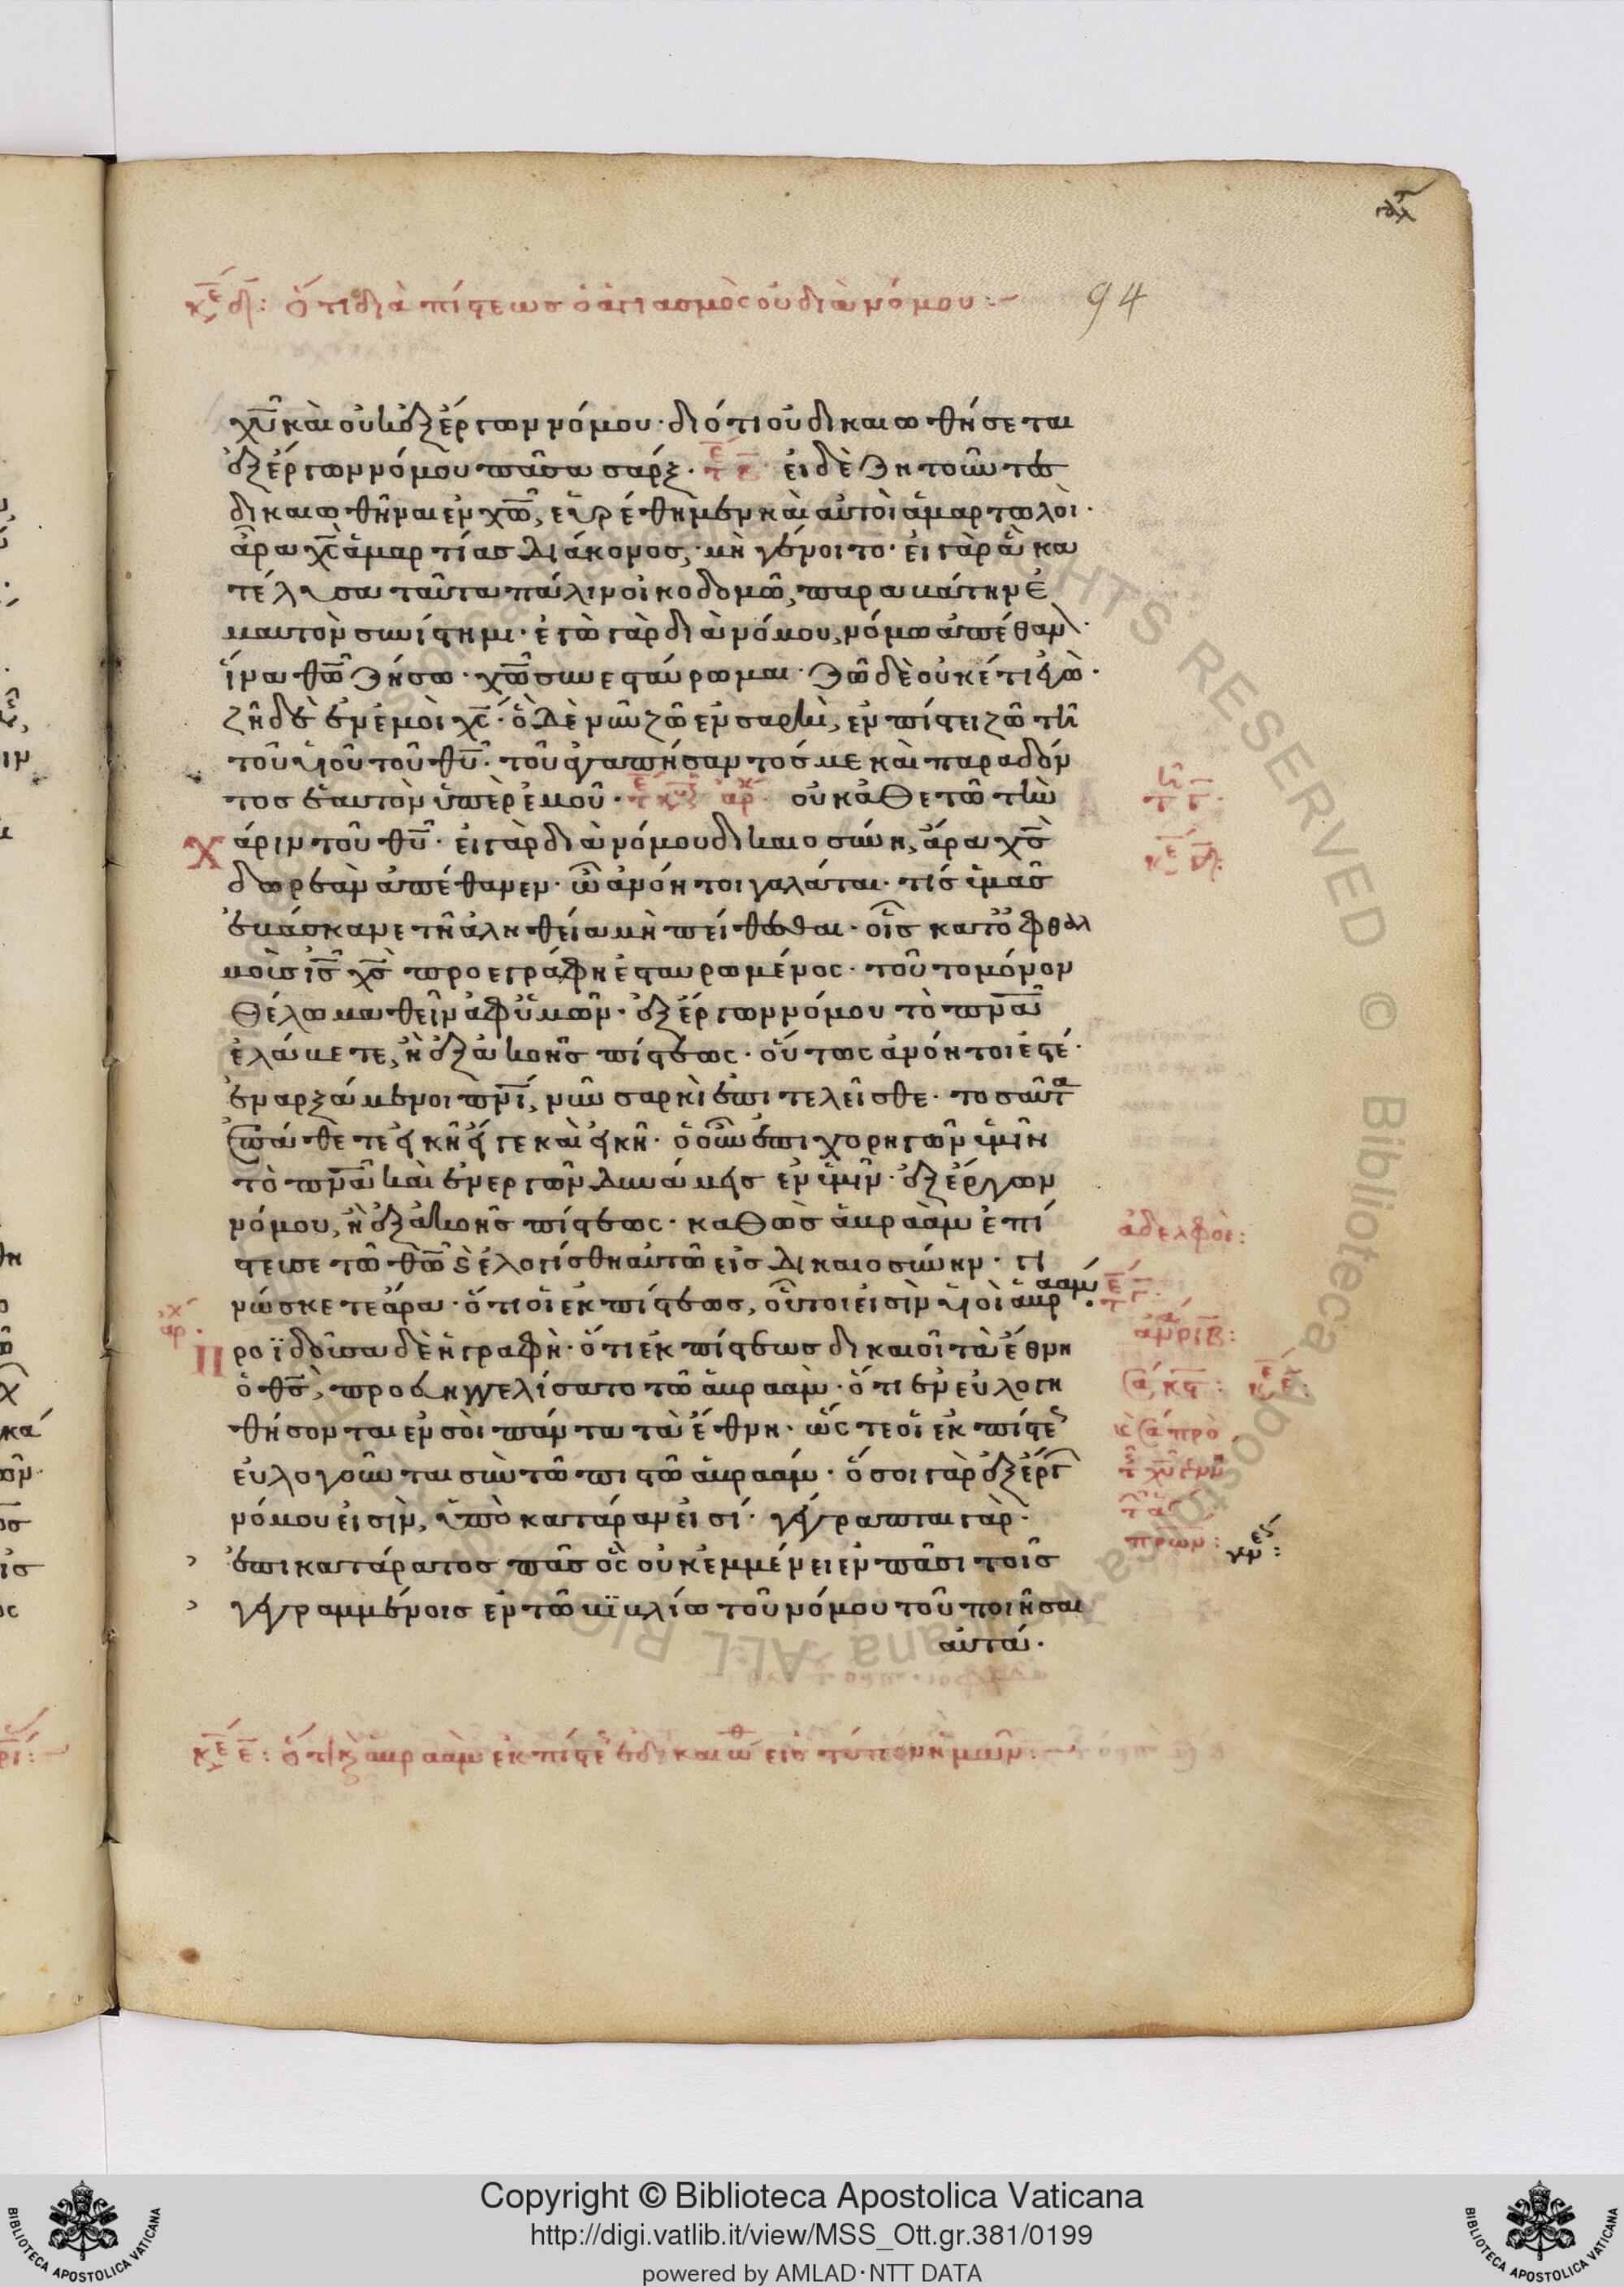 κε δ: ὅτι διὰ πίστεως ὁ ἁγιασμὸς οὐ διὰ νόμου:
94
χυ καὶ οὐκ ἐξ ἔργων νόμου· διότι οὐ δικαιωθήσεται
ἐξ ἔργων νόμου πᾶσα σάρξ· εἰ δὲ ζητοῦντες
δικαιωθῆναι ἐν χω, εὑρέθημεν καὶ αὐτοὶ ἁμαρτωλοί·
ἆρα χς ἁμαρτίας διάκονος· μὴ γένοιτο· εἰ γὰρ ἃ κα
τέλυσα ταῦτα πάλιν οἰκοδομῶ, παραβάτην ἐ
μαυτὸν συνίστημι· ἐγὼ γὰρ διὰ νόμου, νόμω ἀπέθαν
ἵνα θω ζήσω· χω συνεσταύρωμαι· ζῶ δὲ οὐκέτι ἐγὼ·
ζῆ δὲ ἐν ἐμοὶ χς· ὃ δὲ νῦν ζῶ ἐν σαρκὶ, ἐν πίστει ζῶ τῆ
τοῦ υἱοῦ τοῦ θυ· τοῦ ἀγαπήσαντός με καὶ παραδόν
τος ἑαυτὸν ὑπὲρ ἐμοῦ· οὐκ ἀθετῶ τὴν
χάριν τοῦ θυ· εἰ γὰρ διὰ νόμου δικαιοσύνη, ἄρα χς
δωρεὰν ἀπέθανεν· ὦ ἀνόητοι γαλάται· τίς ὑμᾶς
ἐβάσκανε τῆ ἀληθεία μὴ πείθεσθαι· οἷς κατ' ὀφθαλ
μοὺς ις χς προεγράφη ἐσταυρωμένος· τοῦτο μόνον
θέλω μαθεῖν ἀφ' ὑμῶν· ἐξ ἔργων νόμου τὸ πνα
ἐλάβετε, ἢ ἐξ ἀκοῆς πίστεως· οὕτως ἀνόητοί ἐστέ·
ἐναρξάμενοι πνι, νῦν σαρκὶ ἐπιτελεῖσθε· τοσαῦτα
ἐπάθετε εἰκῆ εἴγε καὶ εἰκῆ· ὁ οὖν ἐπιχορηγῶν ὑμῖν
τὸ πνα καὶ ἐνεργῶν δυνάμεις ἐν ὑμῖν· ἐξ ἔργων
νόμου, ἢ ἐξ ἀκοῆς πίστεως· καθὼς ἀβραὰμ ἐπί
στευσε τῶ θω ϛ ἐλογίσθη αὐτῶ εἰς δικαιοσύνην· γι
νώσκετε ἄρα· ὅτι οἱ ἐκ πίστεως, οὗτοι εἰσὶν υἱοὶ ἀβρααμ·
προϊδοῦσα δὲ ἡ γραφὴ· ὅτι ἐκ πίστεως δικαιοῖ τὰ ἔθνη
ὁ θς, προευηγγελίσατο τῶ ἀβραάμ· ὅτι ἐνευλογη
θήσονται ἐν σοὶ πάντα τὰ ἔθνη· ὥστε οἱ ἐκ πίστε
εὐλογοῦνται σὺν τῶ πιστῶ ἀβραάμ· ὅσοι γὰρ ἐξ ἔργ
νόμου εἰσὶν, ὑπὸ κατάραν εἰσί· γέγραπται γάρ·
ἐπικατάρατος πᾶς ὃς οὐκ ἐμμένει ἐν πᾶσι τοῖς
γεγραμμένοις ἐν τῶ βϊβλίω τοῦ νόμου τοῦ ποιῆσαι
αὐτά·
ἀδελφοί:
κε ε: ὅτι κ ἀβραὰμ ἐκ πίστε ἐδικαιώθ εἰς τύπον ἡμῶν:
Copyright © Biblioteca Apostolica Vaticana
http://digi.vatlib.it/view/MSS_Ott.gr.381/0199
powered by AMLAD·NTT DATA
BIBLIOTECA APOSTOLICA VATICANA
BIBLIOTECA APOSTOLICA VATICANA